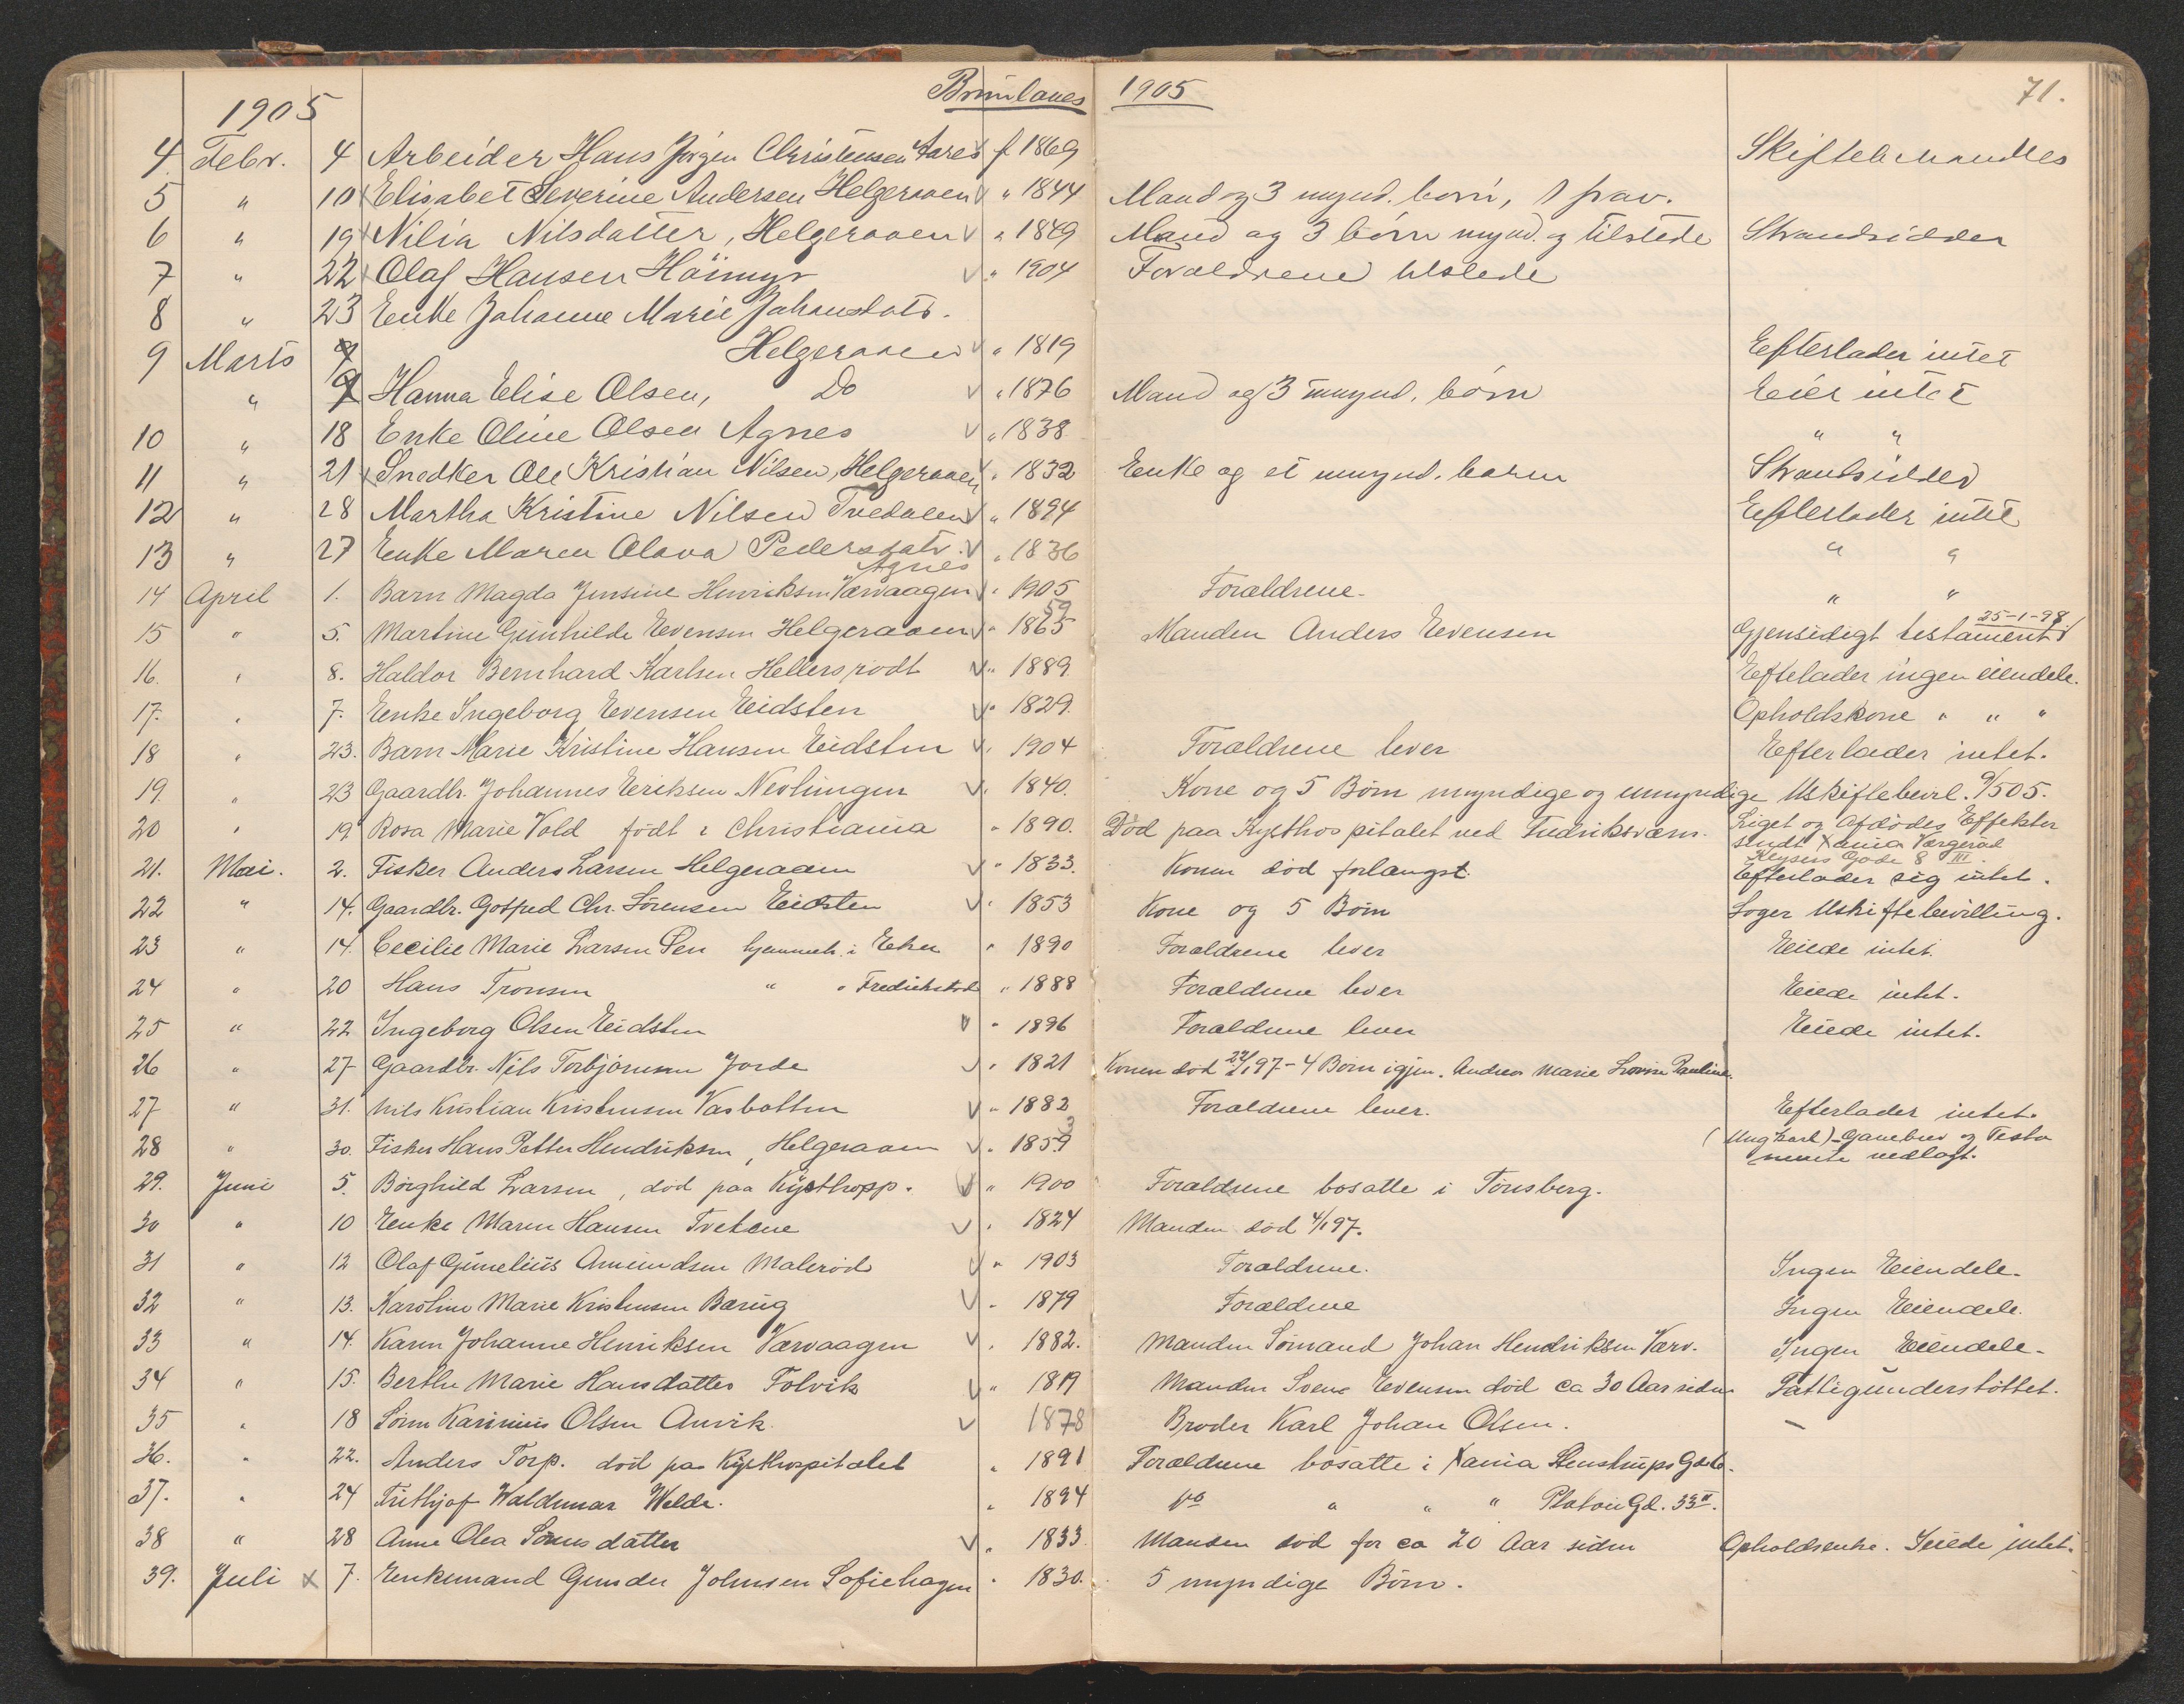 Brunlanes 1905 71.
1905
4 Febr. 4 Arbeider Hans Jörgen Christensen Aares f 1869 Skiftebehandles
5 " 10 Elisabet Severine Andersen Helgeroaen " 1844 Mand og 3 mynd. börn, 1 frav.
6 " 19 Nilia Nilsdatter, Helgeroaen " 1849 Mand og 3 börn mynd. og tilstede Strandsidder
7 " 22 Olaf Hansen Höimyr " 1904 Forældrene tilstede
8 " 23 Enke Johanne Marie Johansdatr.
Helgeroaen " 1819 Efterlader intet
9 Marts 9
" 9 Hanna Elise Olsen, Do " 1876 Mand og 3 umynd. börn Eier intet
10 " 18 Enke Oline Olsen Agnes " 1838 " "
11 " 21 Snedker Ole Kristian Nilsen, Helgeroaen " 1832 Enke og et umynd. barn Strandsidder
12 " 28 Martha Kristine Nilsen Tvedalen " 1894 Efterlader intet
13 " 27 Enke Maren Olava Pedersdatr. " 1836 " "
Agnes
14 April 1. Barn Magda Jensine Henriksen Værvaagen " 1905 Forældrene. " "
15 " 5. Martine Gunhilde Evensen Helgeroaen " 1865 59 Manden Anders Evensen Gjensidigt testament 25-1-98
16. " 8. Haldor Bernhard Karlsen Hellersrödt " 1889 Eftelader ingen eiendele.
17. " 7. Enke Ingeborg Evensen Eidsten " 1829. Opholdskone " " "
18 " 23. Barn Marie Kristine Hansen Eidsten " 1904 Forældrene lever Efterlader intet.
19. " 23 Gaardbr. Johannes Eriksen Nevlungen " 1840. Kone og 5 Börn myndige og umyndige Uskiftebevil. 9/5 05.
20 " 19 Rosa Marie Vold födt i Christiania " 1890. Död paa Kysthospitalet ved Fredriksværn. Liget og Afdödes Effekter
sendt Xania Værgeraad
Keysers Gade 8 III.
21. Mai. 2. Fisker Anders Larsen Helgeroaen " 1833. Konen död forlængst. Efterlader sig intet.
22 " 14. Gaardbr. Gotfred Chr. Sörensen Eidsten " 1853 Kone og 5 Börn Söger Uskiftebevilling.
23 " 14. Cecilie Marie Larsen Sen hjemmeh. i Eker " 1890 Forældrene lever Eiede intet.
24 " 20 Hans Tronsen " " Fredrikstad " 1888 Forældrene lever Eiede intet.
25 " 22 Ingeborg Olsen Eidsten " 1896 Forældrene lever Eiede intet.
26 " 27 Gaardbr. Nils Torbjörnsen Jorde " 1821 Konen död 22/1 97 - 4 Börn igjen. Andrea Marie Lovise Pauline.
27 " 31. Nils Kristian Kristensen Vasbotten " 1882 Forældrene lever. Efterlader intet.
28 " 30. Fisker Hans Petter Hendriksen, Helgeroaen " 1859 3 (Ungkarl) - Gavebrev og Testa
mente vedlagt.
29. Juni 5. Borghild Larsen, död paa Kysthosp. " 1900 Forældrene bosatte i Tönsberg.
30 " 10 Enke Maren Hansen Tvetene " 1824 Manden död 4/1 97.
31 " 12 Olaf Gunelius Amundsen Maleröd " 1903 Forældrene. Ingen Eiendele.
32 " 13. Karoline Marie Kristensen Barug " 1879 Forældrene Ingen Eiendele.
33 " 14. Karen Johanne Henriksen Værvaagen " 1882. Manden Sömand Johan Hendriksen Værv. Ingen Eiendele.
34 " 15. Berthe Marie Hansdatter Tolvik " 1819 Manden Svend Evensen död ca 30 Aar siden Fattigunderstöttet.
35 " 18 Sören Karinius Olsen Anvik 1878 Broder Karl Johan Olsen. -
36. " 22. Anders Torp. död paa Kysthospitalet " 1891 Forældrene bosatte i Xania Stenstrups Gade.
37. " 24 Frithjof Waldemar Welde. " 1894 Do " " " Platous Gd. 33 II.
38 " 28 Anne Olea Sörensdatter " 1833 Manden död for ca 20 Aar siden Opholdsenke. Eiede intet.
39. Juli x 7. Enkemand Gunder Johnsen Sofiehagen " 1830. 5 myndige Börn.